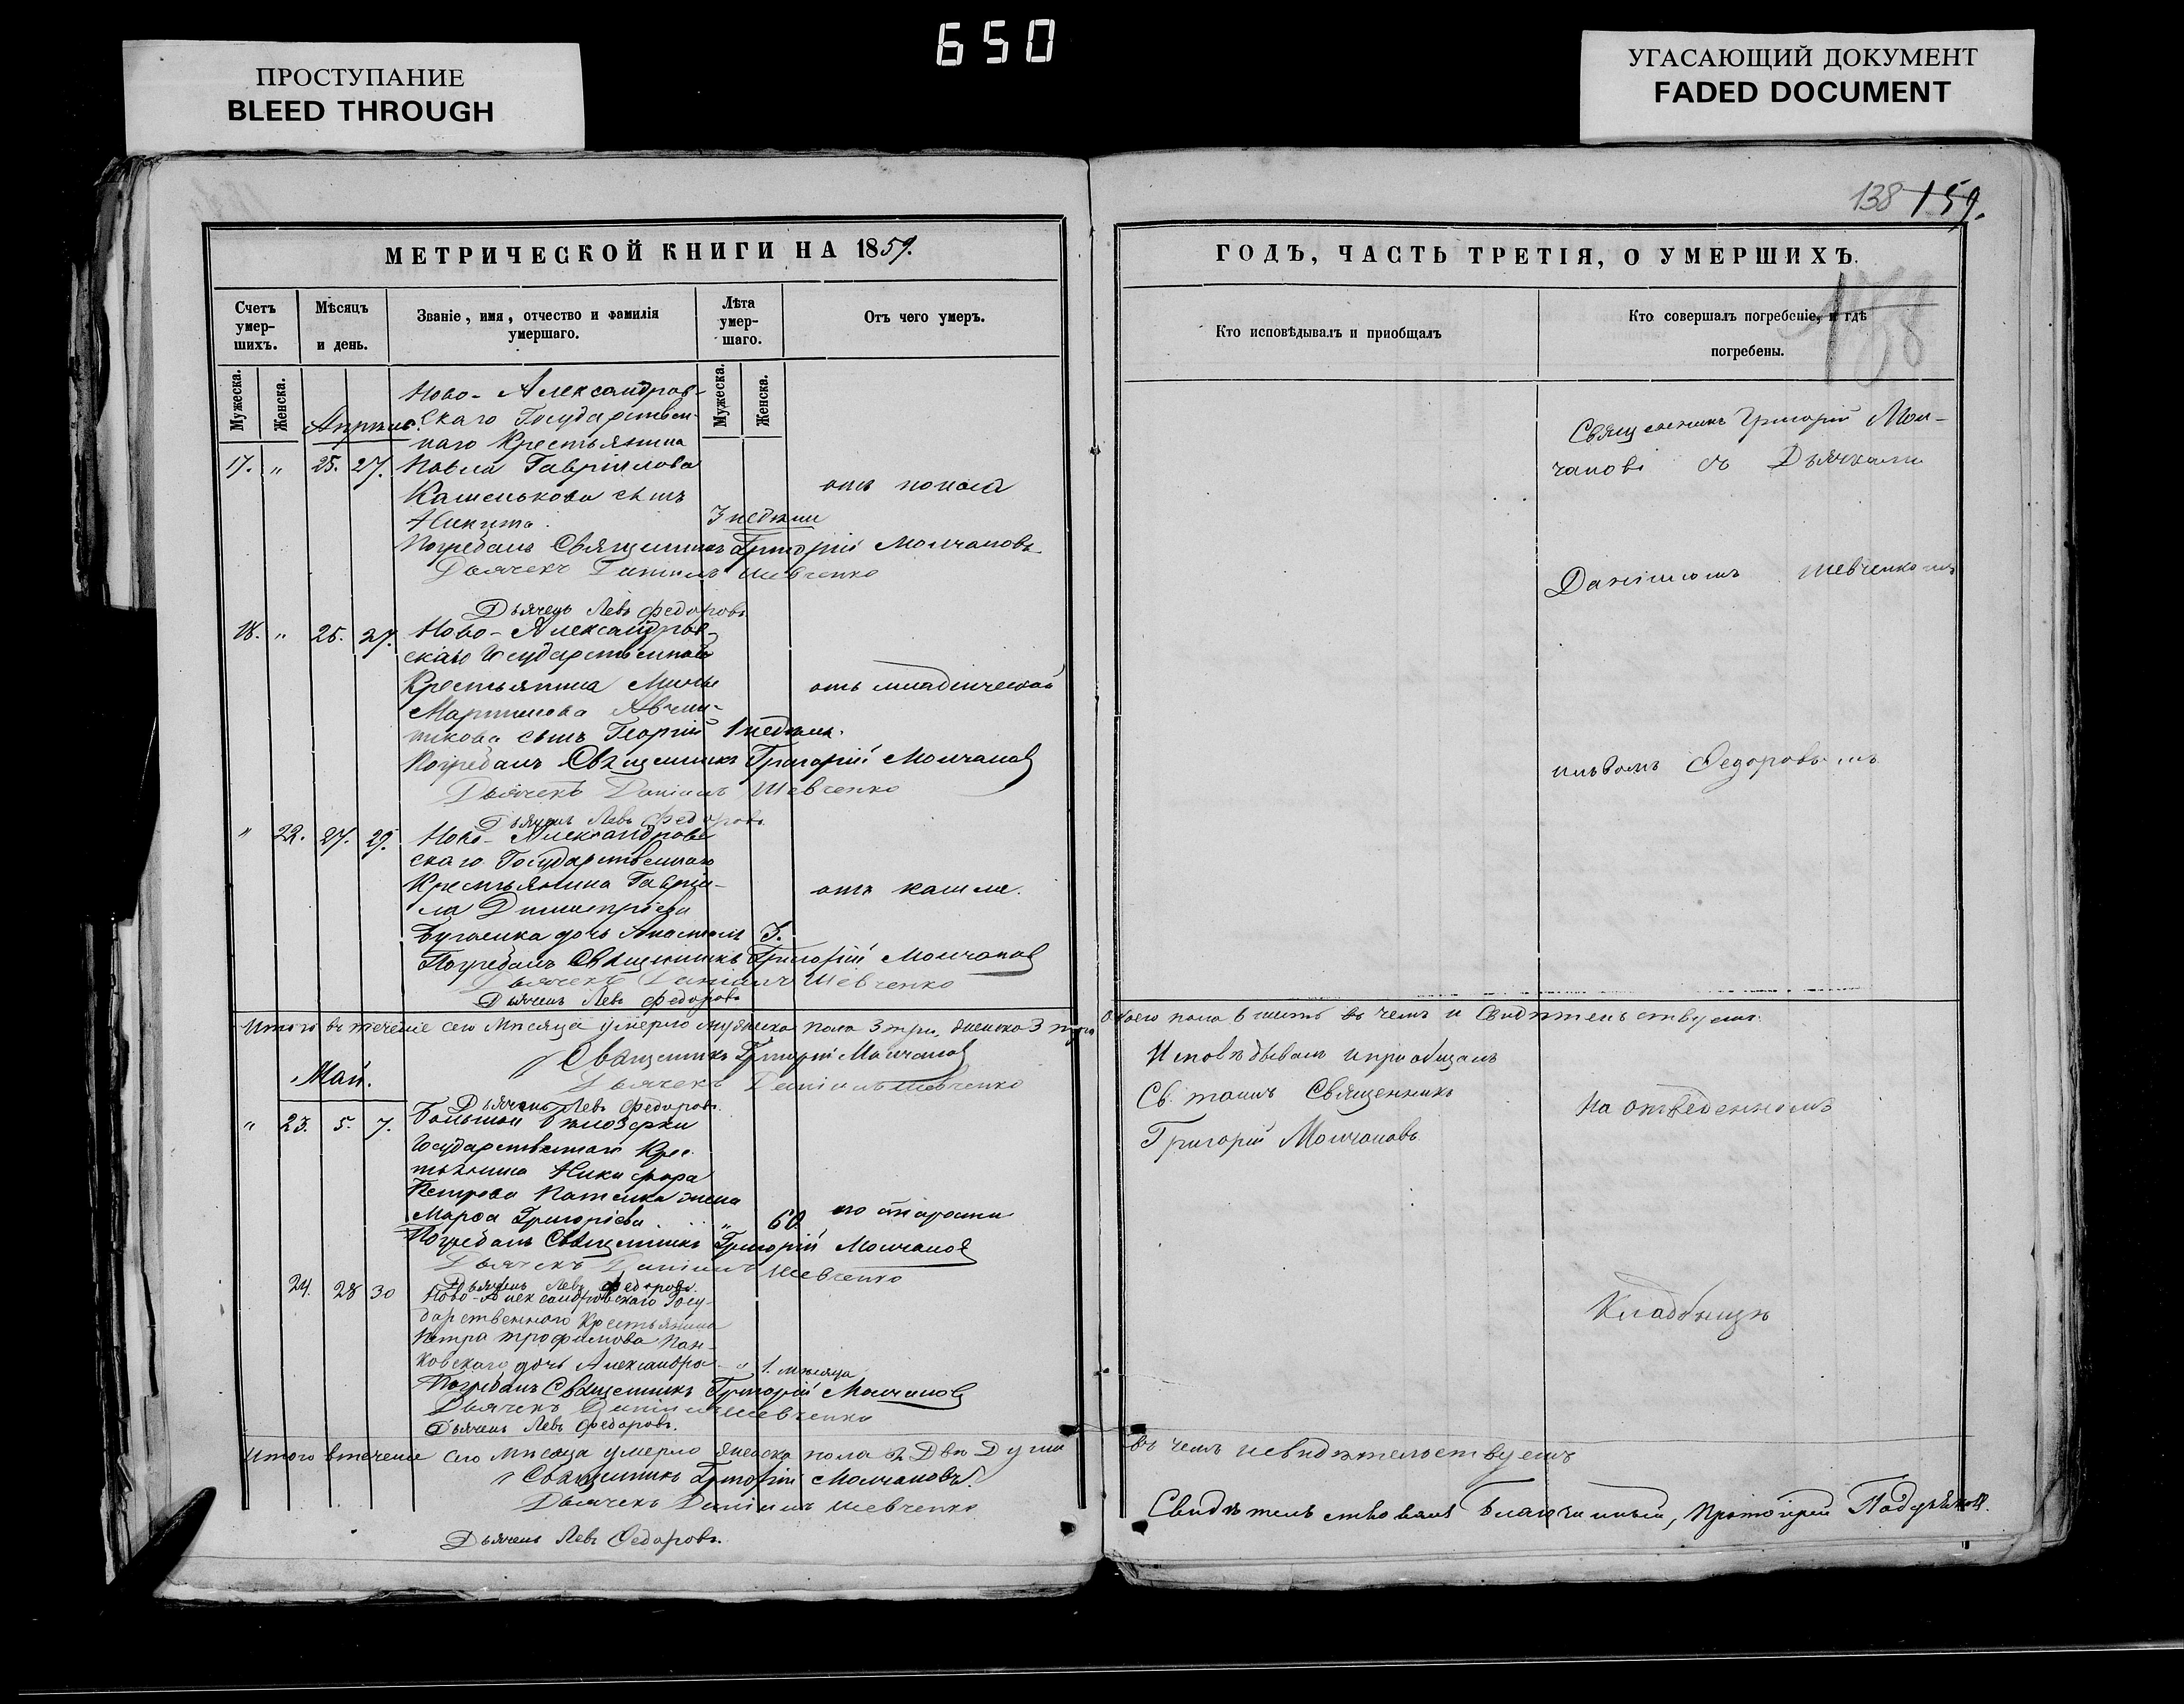 650
ПРОСТУПАНИЕ
BLEED THROUGH
УГАСАЮЩИЙ ДОКУМЕНТ
FADED DOCUMENT
138 159.
МЕТРИЧЕСКОЙ КНИГИ НА 1859.
Счетъ умер-шихъ.
Мѣсяцъ и день.
Званіе, имя, отчество и фамилія умершаго.
Лѣта умер-шаго.
Отъ чего умеръ.
Мужеска.
Женска.
Мужеска.
Женска.
Апрѣль.
Ново-Александров-
скаго Государствен-
наго Крестьянина
17. " 25. 27. Павла Гавріилова
Кашенькова сынъ
отъ поноса
Никита. 3 недѣли
Погребалъ Священникъ Григорій Молчановъ
Дьячекъ Даніилъ Шевченко
Дьячекъ Левъ Федоровъ
18. " 25. 27. Ново-Александров-
скаго Государственнаго
Крестьянина
отъ младенческой
Мартинова
сынъ Георгій 1 недѣля.
Погребалъ Священникъ Григорій Молчановъ
Дьячекъ Даніилъ Шевченко
Дьячекъ Левъ Федоровъ
" 22. 27. 29. Ново-Александров
скаго Государственнаго
Крестьянина Гаврі-
ила Димитріева
отъ кашля.
дочь 3.
Погребалъ Священникъ Григорій Молчановъ
Дьячекъ Даніилъ Шевченко
Дьячекъ Левъ Федоровъ
Итого въ теченіе сего Мѣсяца умерло мужеска пола 3 три, женска 3 три
Священникъ Григорій Молчановъ
Май.
Дьячекъ Даніилъ Шевченко
Дьячекъ Левъ Федоровъ.
" 23. 5. 7. Большой Бѣлозерки
Государственнаго Крес-
тьянина Никифора
Петрова жена
Марфа Григоріева " 60
отъ старости
Погребалъ Священникъ Григорій Молчановъ
Дьячекъ Даніилъ Шевченко
Дьячекъ Левъ Федоровъ.
24. 28 30 Ново-Александровскаго Госу-
дарственного Крестьянина
Петра Трофимова Пан-
ковскаго дочь Александра " 1. мѣсяца
Погребалъ Священникъ Григорій Молчановъ
Дьячекъ Даніилъ Шевченко
Дьячекъ Левъ Федоровъ.
Итого втеченіе сего Мѣсяца умерло женска пола 2 Двѣ Души
Священникъ Григорій Молчановъ
Дьячекъ Даніилъ Шевченко
Дьячекъ Левъ Федоровъ.
ГОДЪ, ЧАСТЬ ТРЕТІЯ, О УМЕРШИХЪ.
158
Кто исповѣдывалъ и приобщалъ
Кто совершалъ погребеніе, и гдѣ погребены.
Священникъ Григорій Мол-
чановъ съ Дьячками
Даніиломъ Шевченкомъ
Федоровымъ
Обоего пола 6 шесть въ чемъ и Свидѣтельствуемъ.
Исповѣдывалъ и приобщалъ
Св. таинъ Священникъ
Григорій Молчановъ
На отведенномъ
Кладбищѣ
въ чемъ и свидѣтельствуемъ
Свидѣтельствовалъ Благочинный, Протоіерей